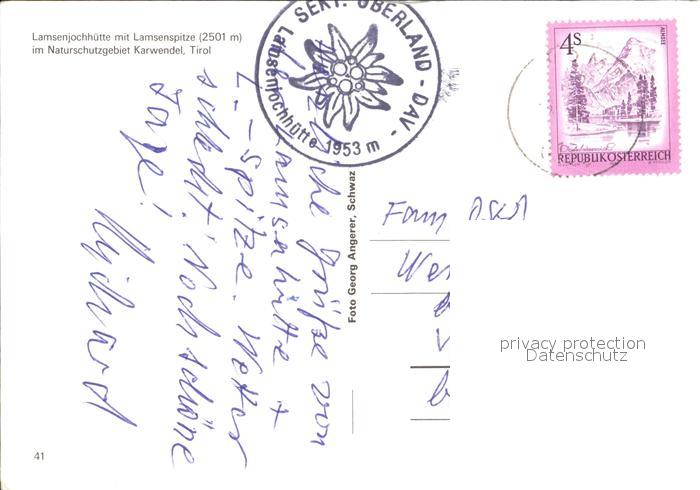 Lamsenjochhütte mit Lamsenspitze (2501 m)
im Naturschutzgebiet Karwendel, Tirol
SEKT. OBERLAND - DAV -
Lamsenjochhütte 1953 m
4s
ALMSEE
REPUBLIK ÖSTERREICH
Herzliche Grüße von
Lamsenhütte +
L. - spitze. Wetter
schlecht. Noch schöne
Tage!
Richard
Foto Georg Angerer, Schwaz
Fam
We
privacy protection
Datenschutz
41